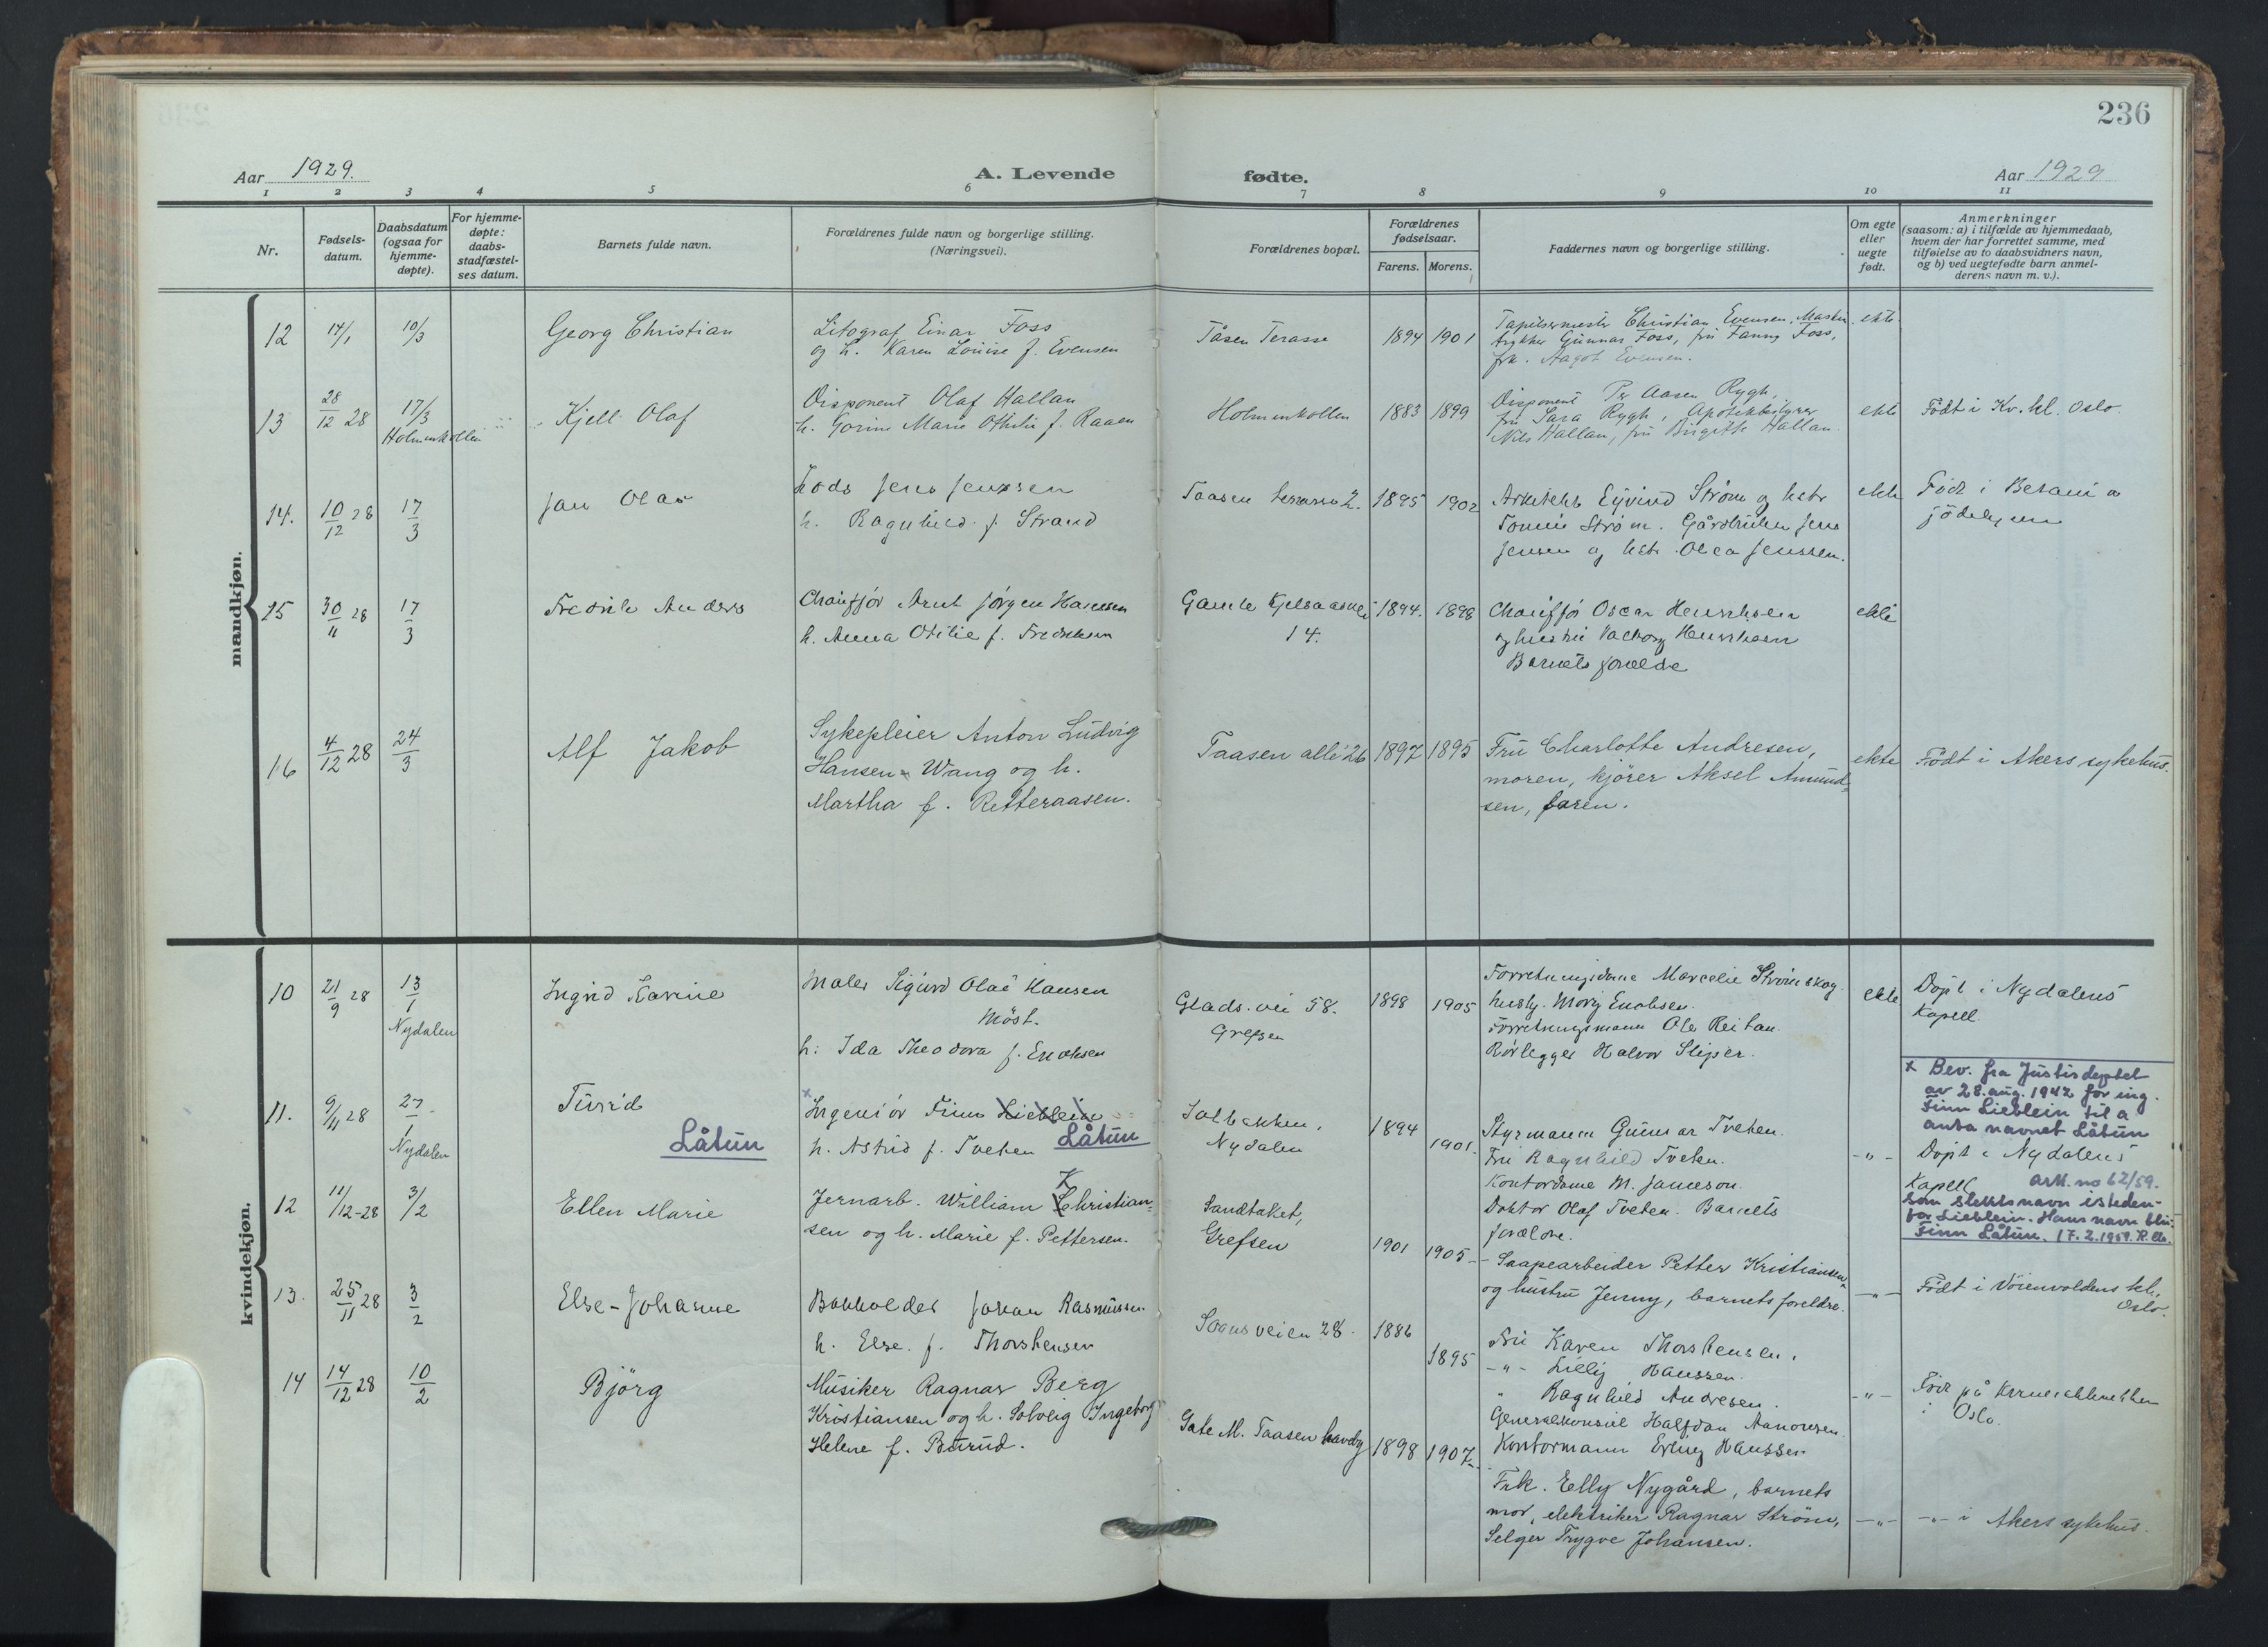 236
Aar 1929.
A. Levende fødte.
Aar 1929
1 2 3 4 5 6 7 8 9 10 11
Nr.
Fødsels-
datum.
Daabsdatum
(ogsaa for
hjemme-
døpte).
For hjemme-
døpte:
daabs-
stadfæstel-
ses datum.
Barnets fulde navn.
Forældrenes fulde navn og borgerlige stilling.
(Næringsvei).
Forældrenes bopæl.
Forældrenes
fødselsaar.
Farens. Morens.
Faddernes navn og borgerlige stilling.
Om egte
eller
uegte
født.
Anmerkninger
(saasom: a) i tilfælde av hjemmedaab,
hvem der har forrettet samme, med
tilføielse av to daabsvidners navn,
og b) ved uegtefødte barn anmel-
derens navn m. v.).
mandkjøn.
12 14/1 10/3
Georg Christian
Litograf Einar Foss
og h. Karen Louise f. Evensen
Tåsen Terasse
1894 1901
Tapetsermester Christian Evensen, Maskin
trykker Gunnar Foss, fru Fanny Foss,
frk. Aagot Evensen.
ekte
13 28/12 28 17/3
Holmenkollen
Kjell Olaf
Disponent Olaf Hallan
h. Gorine Marie Othilie f. Raaen
Holmenkollen
1883 1899
Disponent Per Aasen Rygh,
fru Sara Rygh, Apotekbestyrer
Nils Hallan, fru Birgitte Hallan
ekte
Født i Kv. kl. Oslo.
14. 10/12 28 17/3
Jan Olav
Lods Jens Jenssen
h. Ragnhild f. Strand
Taasen terrasse 2.
1895 1902
Arkitekt Eyvind Strøm og hstr
Strøm. Gårdbruker Jens
Jensen og hstr. Olea Jenssen.
ekte
Född i Betania
15 30/11 28 17/3
Fredrik Anders
Chauffør Arnt Jørgen Hansen
h. Anna Otilie f. Fredriksen
Gamle Kjelsaasvei
14.
1894. 1898
Chauffø Oscar Henriksen
og hustru Valborg Henriksen
Barnets forælde
ekte
16 4/12 28 24/3
Alf Jakob
Sykepleier Anton Ludvig
Hansen-Wang og h.
Martha f. Retteraasen.
Taasen allé 26
1897 1895
Fru Charlotte Andresen,
moren, kjører Aksel Amund-
sen, faren.
ekte
Født i Akers sykehus.
kvindekjøn.
10 21/9 28 13/1
Nydalen
Ingrid Karine
Maler Sigurd Olaf Hansen
Møst.
h: Ida Theodora f. Enoksen
Glads. vei 58.
Grefsen
1898 1905
Forretningsdame Marcelie Strømskog.
husby. Enoksen
Forretningsmann Ole Reitan.
Rørlegger Halvor Sliper.
ekte
Døpt i Nydalens
Kapell
11. 9/11 28 27/1
Nydalen
Turid
Låtun
x Ingeniør Finn Lieblein
h. Astrid f. Tveten Låtun
Solbakken,
Nydalen
1894 1901.
Styrmann Gunnar Tveten.
Fru Ragnhild Tveten.
Kontordame M. Jameson.
Doktor Olaf Tveten. Barnets
forældre.
-"-
x Bev. fra Justisdeptet
av 28. aug. 1942 for ing.
Finn Lieblein til å
anta navnet Låtun
Døpt i Nydalens
Kapell ark. no 62/59.
som slektsnavn isteden-
for Lieblein. Hans navn blir:
Finn Låtun. 17.2.1959.
12 11/12-28 3/2
Ellen Marie
Jernarb. William K Christian-
sen og h. Marie f. Pettersen.
Sandtaket,
Grefsen
1901 1905
Saapearbeider Petter Kristiansen
og hustru Jenny, barnets foreldre.
-"-
Født i Vøienvoldens kl.,
Oslo.
13. 25/11 28 3/2
Else-Johanne
Bokholder Johan Rasmussen
h. Else f. Thorstensen
Sognsveien 28.
1886 1895
Fru Karen Thorstensen,
-"- Lilly Hanssen.
" Ragnhild Andresen.
Generalkonsul Halfdan Aanonsen.
Kontormann Erling Hanssen
-"-
i Oslo.
14 14/12 28 10/2
Bjørg
Musiker Ragnar Berg
Kristiansen og h. Solveig Ingeborg
Helene f. Bærud.
Gate M. Taasen haveby
1898 1907
Frk. Elly Nygård, barnets
mor, elektriker Ragnar Strøm,
Selger Trygve Johansen.
-"-
-"- i Akers sykehus.